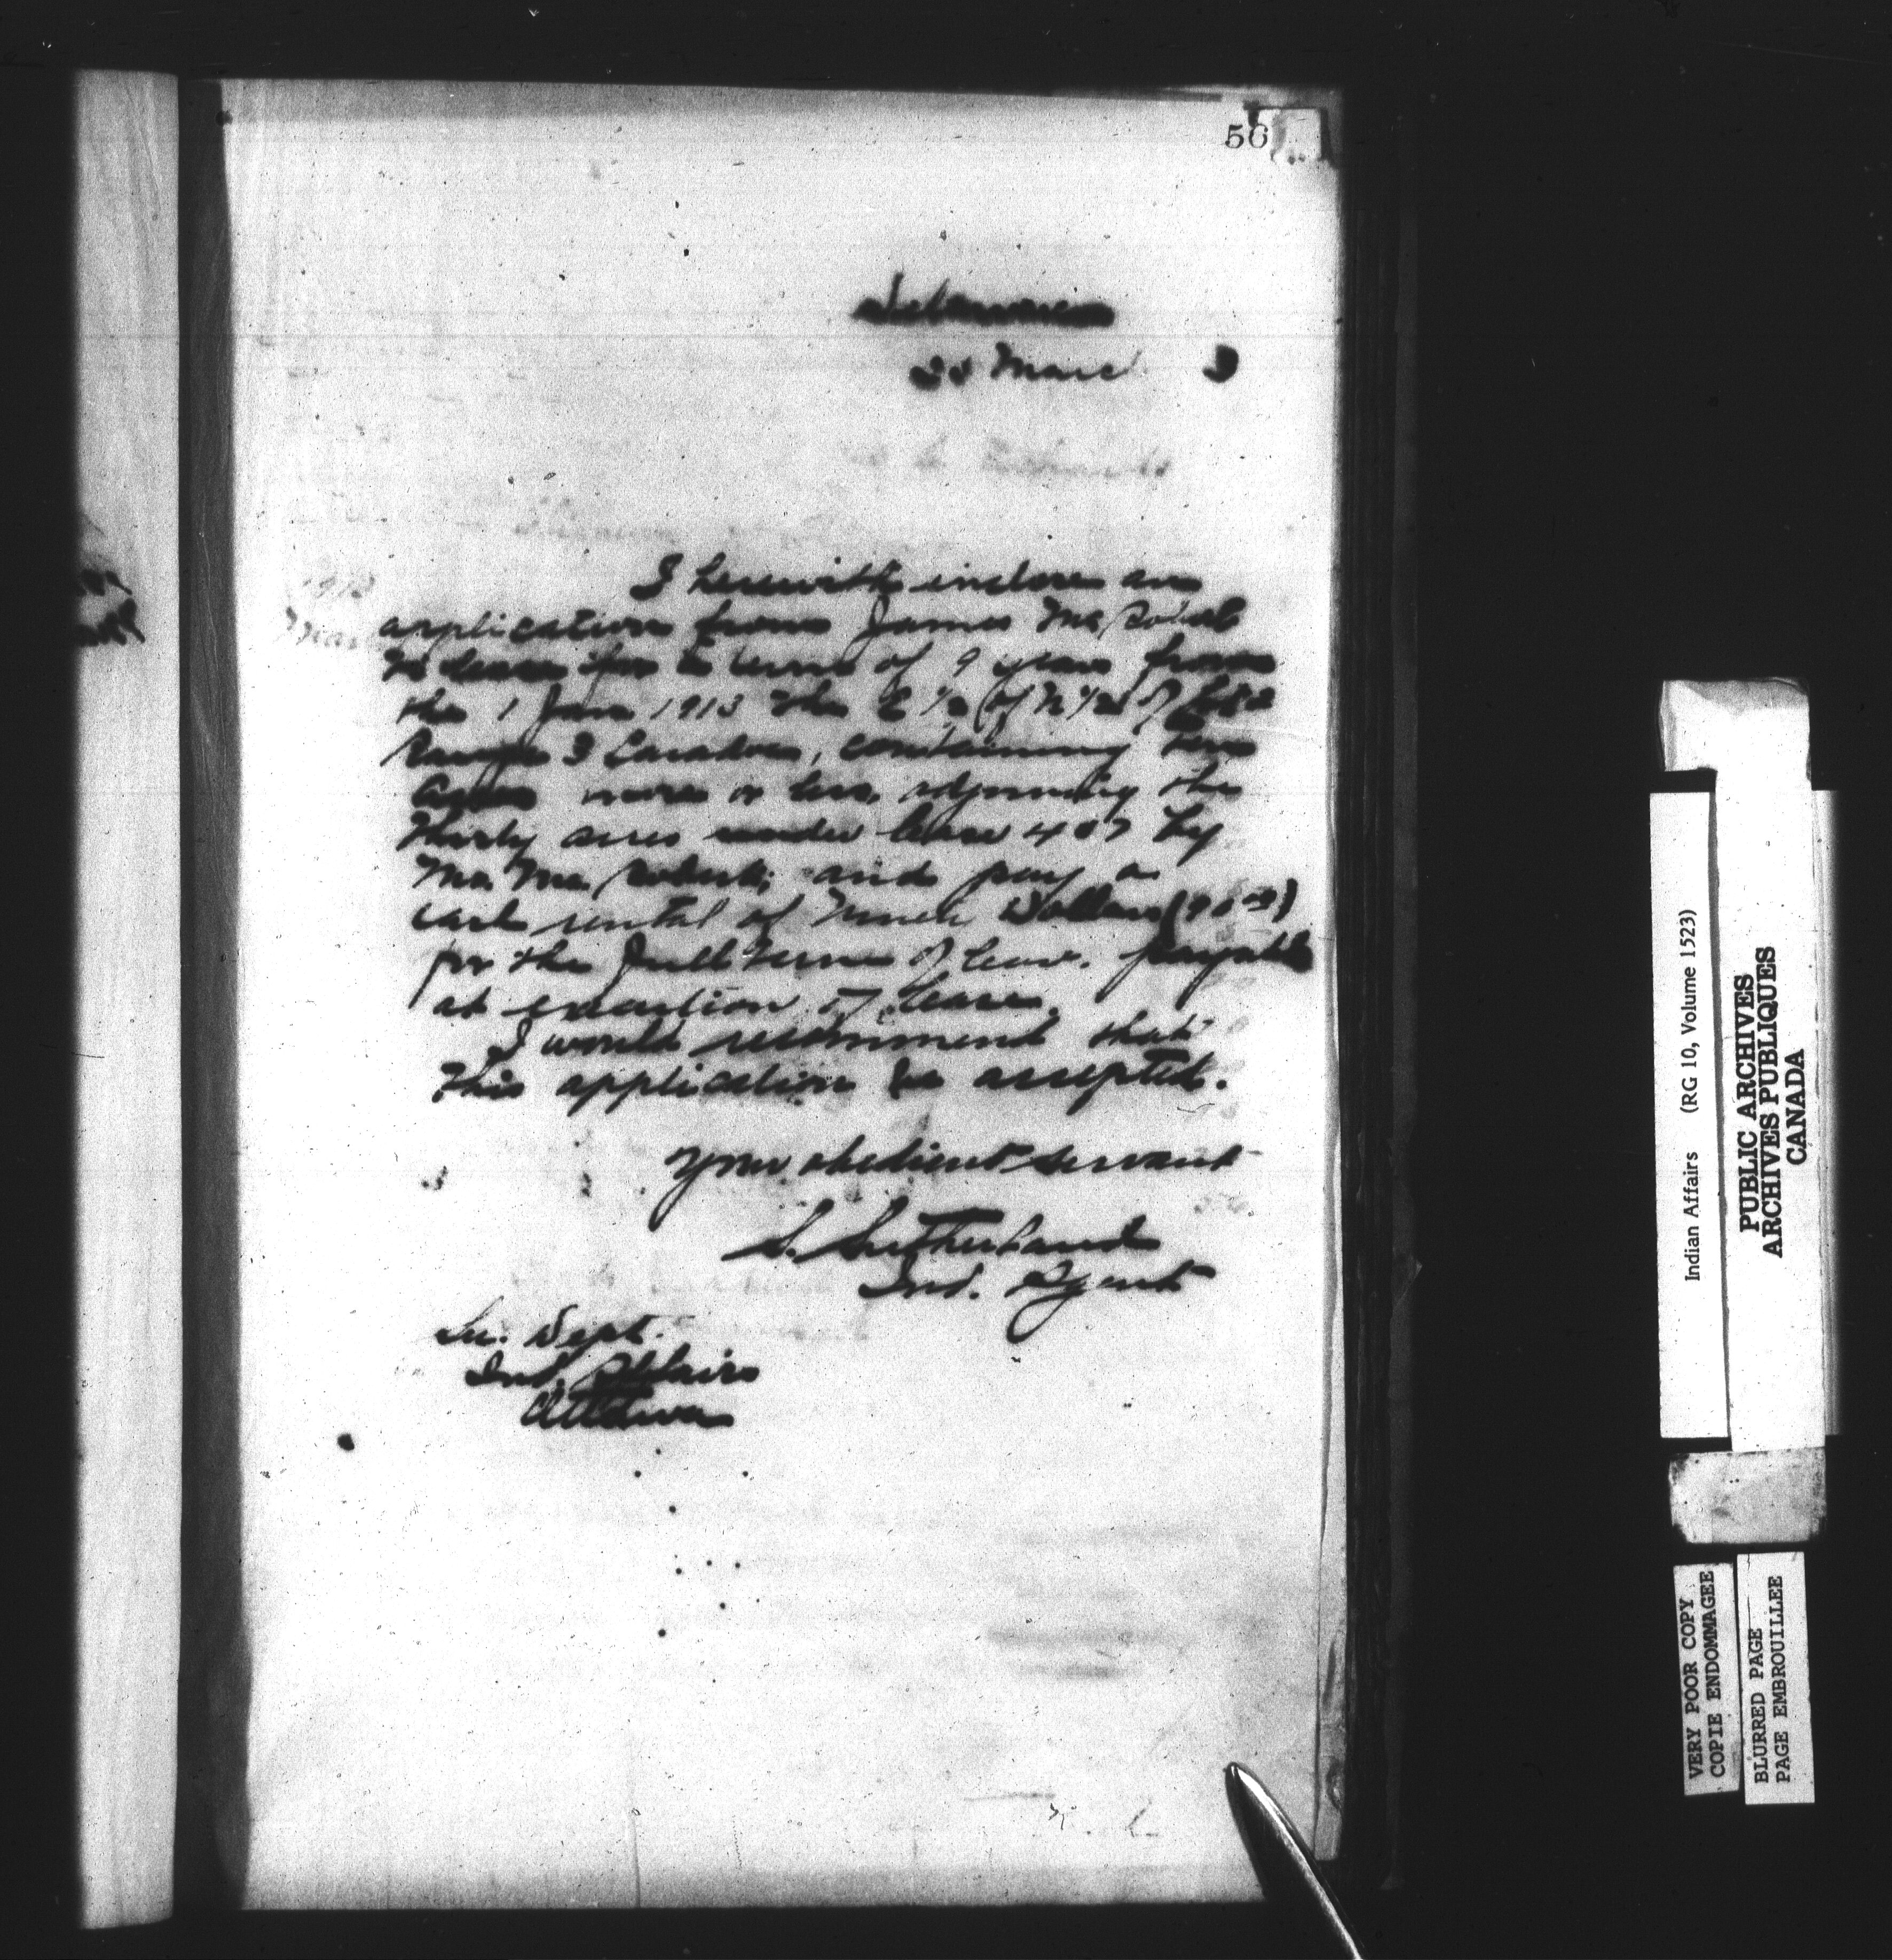 56
Delaware
March 3
I herewith inclose an
application from James Mc Robert
to lease for a term of 9 years from
the 1 Jan 1913 the E 1/2 of N 1/2 of Lot 2
Range 3 Caradoc, containing ten
Acres more or less, adjoining the
thirty acres under lease 407 by
Mr. Mc. Robert; and pay a
cash rental of Dollars
for the full term of lease. payable
at execution of lease.
I would recommend that
this application be accepted.
Your obedient servant
S. Sutherland
Ind. Agent
Sec. Dept.
Ind. Affairs
Ottawa
Indian Affairs (RG 10, Volume 1523)
PUBLIC ARCHIVES
ARCHIVES PUBLIQUES
CANADA
VERY POOR COPY
COPIE ENDOMMAGEE
BLURRED PAGE
PAGE EMBROUILLEE